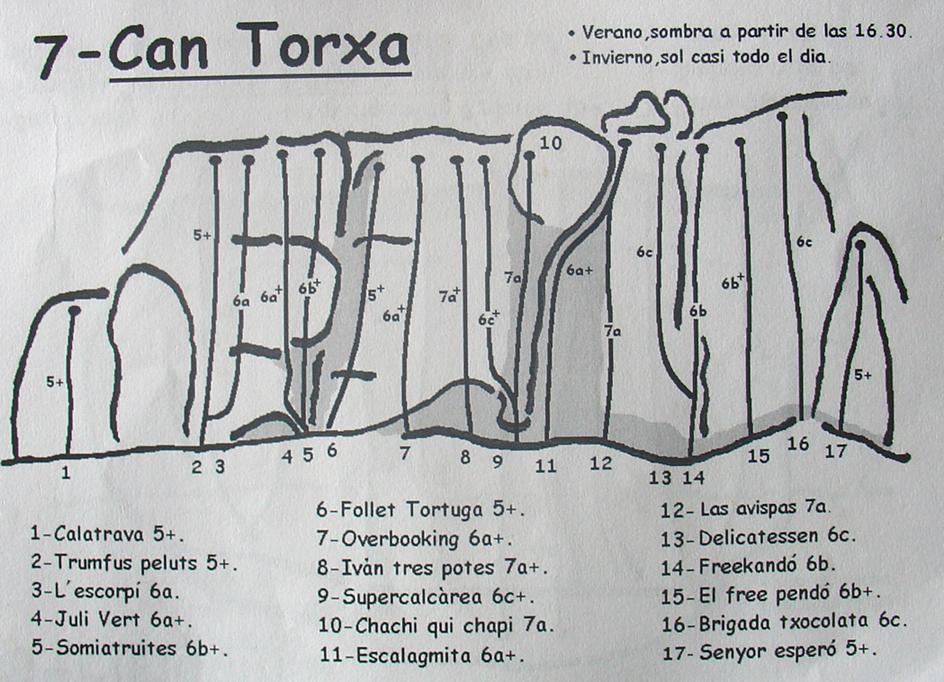 7-Can Torxa
• Verano,sombra a partir de las 16.30.
• Invierno,sol casi todo el dia.
10
5+
6a
6a+
6b+
5+
6a+
7a+
6c+
7a
6a+
7a
6c
6b
6b+
6c
5+
5+
1
2
3
4
5
6
7
8
9
11
12
13
14
15
16
17
1-Calatrava 5+.
2-Trumfus peluts 5+.
3-L´escorpí 6a.
4-Juli Vert 6a+.
5-Somiatruites 6b+.
6-Follet Tortuga 5+.
7-Overbooking 6a+.
8-Ivàn tres potes 7a+.
9-Supercalcàrea 6c+.
10-Chachi qui chapi 7a.
11-Escalagmita 6a+.
12- Las avispas 7a.
13-Delicatessen 6c.
14-Freekandó 6b.
15-El free pendó 6b+.
16-Brigada txocolata 6c.
17- Senyor esperó 5+.